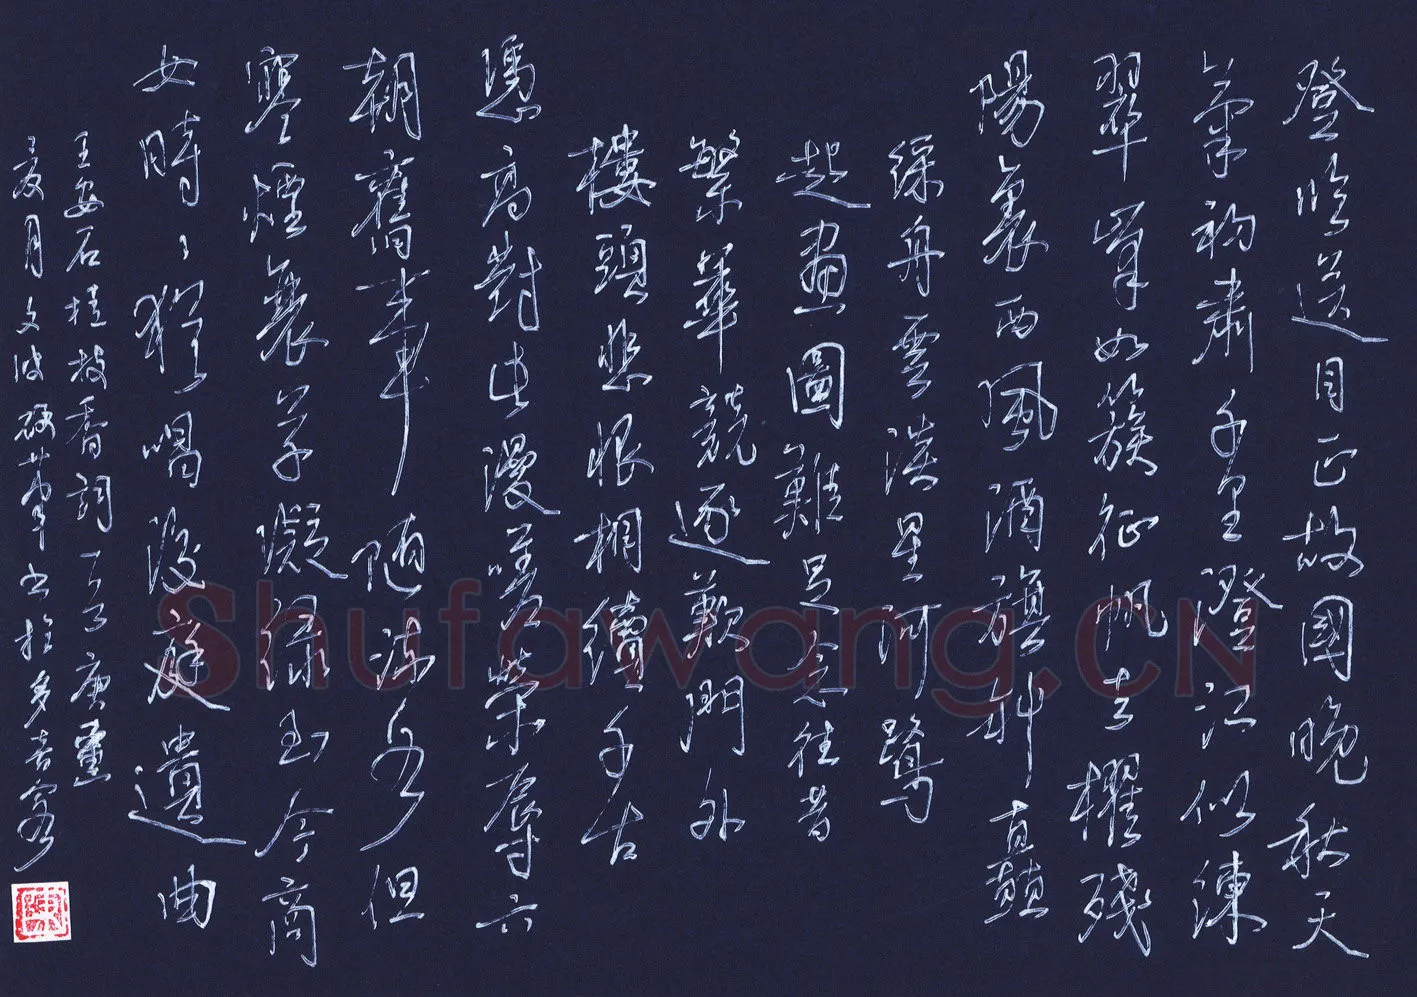 登臨送目正故國晚秋天
氣初肅千里澄江似練
翠峯如簇征帆去櫂殘
陽裏西風酒旗斜矗
綵舟雲淡星河鷺
起畫圖難足念往昔
繁華競逐歎門外
樓頭悲恨相續千古
憑高對此漫嗟榮辱六
朝舊事隨流水但
寒煙衰草凝綠至今商
女時〻猶唱後庭遺曲
王安石桂枝香詞一首庚寅
夏月文波硬筆書於多吉客
Shufawang.CN